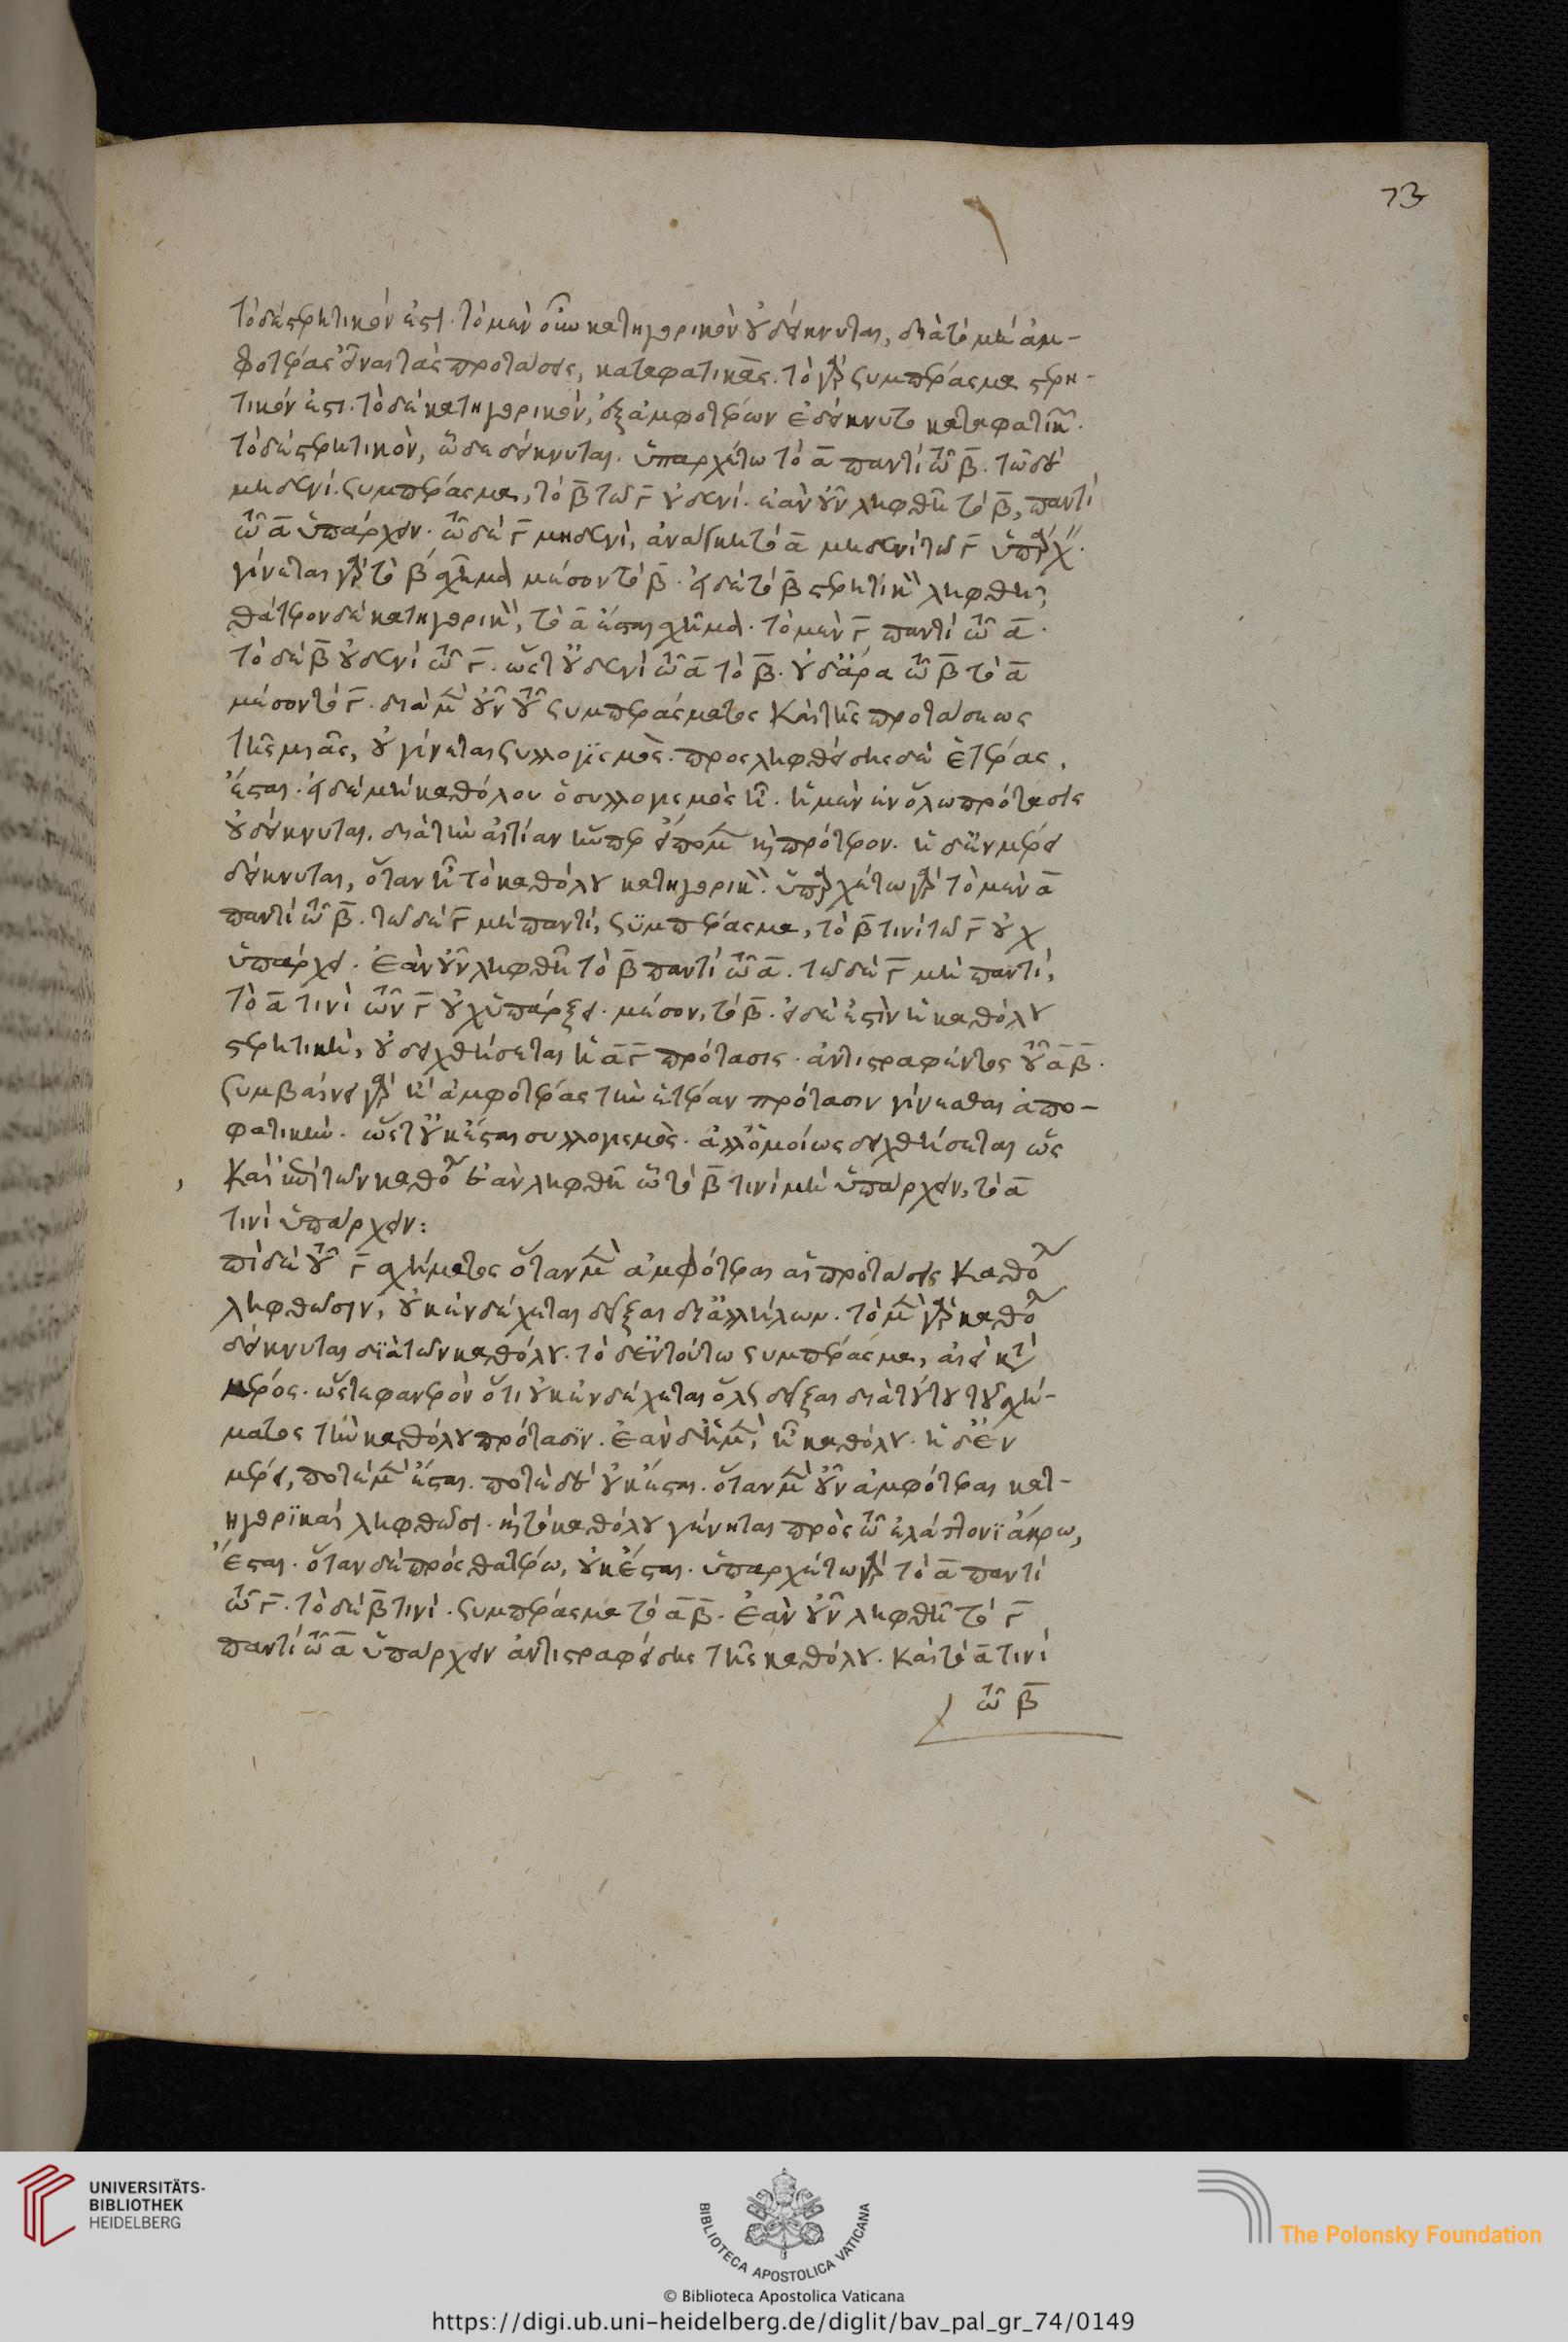 73
τὸ δὲ στερητικόν ἐστι. τὸ μὲν οὖν κατηγορικὸν οὐ δείκνυται, διὰ τὸ μὴ ἀμ-
φοτέρας εἶναι τὰς προτάσεις, καταφατικάς. τὸ γὰρ συμπέρασμα στερη-
τικόν ἐστι. τὸ δὲ κατηγορικὸν, ἐξ ἀμφοτέρων ἐδείκνυτο καταφατικῶν.
τὸ δὲ στερητικὸν, ὧδε δείκνυται. ὑπαρχέτω τὸ α παντὶ τῶ β. τῶ δὲ
μηδενί. συμπέρασμα, τὸ β τῶ γ οὐδενί. ἐὰν οὖν ληφθῆ τὸ β, παντὶ
τῶ α ὑπάρχειν. τῶ δὲ γ μηδενὶ, ἀνάγκη τὸ α μηδενὶ τῶ γ ὑπάρχ.
γίνεται γὰρ τὸ β σχῆμα μέσον τὸ β. εἰ δὲ τὸ β στερητικὸν ληφθῆ,
θάτερον δὲ κατηγορικὸν, τὸ α ἔσται σχῆμα. τὸ μὲν γ παντὶ τῶ α.
τὸ δὲ β οὐδενὶ τῶ γ. ὥστ' οὐδενὶ τῶ α τὸ β. οὐδ' ἄρα τῶ β τὸ α
μέσον τὸ γ. διὰ μὲν οὖν τοῦ συμπεράσματος καὶ τῆς προτάσεως
τῆς μιᾶς, οὐ γίνεται συλλογισμός. προσληφθείσης δὲ ἑτέρας,
ἔσται. εἰ δὲ μὴ καθόλου ὁ συλλογισμὸς ἦ. ἡ μὲν ἐν ὅλω πρότασις
οὐ δείκνυται. διὰ τὴν αἰτίαν ἥνπερ εἴπομεν καὶ πρότερον. ἡ δ' ἐν μέρει
δείκνυται, ὅταν ἦ τὸ καθόλου κατηγορικὸν. ὑπαρχέτω γὰρ τὸ μὲν α
παντὶ τῶ β. τῶ δὲ γ μὴ παντὶ, συμπέρασμα, τὸ β τινὶ τῶ γ οὐχ
ὑπάρχει. ἐὰν οὖν ληφθῆ τὸ β παντὶ τῶ α. τῶ δὲ γ μὴ παντὶ,
τὸ α τινὶ τῶν γ οὐχ ὑπάρξει. μέσον, τὸ β. εἰ δὲ ἐστὶν ἡ καθόλου
στερητικὴ, οὐ δειχθήσεται ἡ α γ πρότασις. ἀντιστραφέντος τοῦ α β.
συμβαίνει γὰρ ἢ ἀμφοτέρας ἢ τὴν ἑτέραν πρότασιν γίνεσθαι ἀπο-
φατικήν. ὥστ' οὐκ ἔσται συλλογισμός. ἀλλ' ὁμοίως δειχθήσεται ὡς
καὶ ἐπὶ τῶν καθόλου ἐὰν ληφθῆ ὧ τὸ β τινὶ μὴ ὑπάρχειν, τὸ α
τινὶ ὑπάρχειν:
πὶ δὲ τοῦ γ σχήματος ὅταν μὲν ἀμφότεραι αἱ προτάσεις καθόλου
ληφθῶσιν, οὐκ ἐνδέχεται δεῖξαι δι' ἀλλήλων. τὸ μὲν γὰρ καθόλου
δείκνυται διὰ τῶν καθόλου. τὸ δ' ἐν τούτω συμπέρασμα, ἀεὶ κατὰ
μέρος. ὥστε φανερὸν ὅτι οὐκ ἐνδέχεται ὅλως δεῖξαι διὰ τούτου τοῦ σχή-
ματος τὴν καθόλου πρότασιν. ἐὰν δ' ἡ μὲν, ἦ καθόλου. ἡ δ' ἐν
μέρει, ποτὲ μὲν ἔσται. ποτὲ δὲ οὐκ ἔσται. ὅταν μὲν οὖν ἀμφότεραι κατ-
ηγορικαὶ ληφθῶσι. καὶ τὸ καθόλου γένηται πρὸς τῶ ἐλάττονι ἄκρω,
ἔσται. ὅταν δὲ πρὸς θατέρω, οὐκ ἔσται. ὑπαρχέτω γὰρ τὸ α παντὶ
τῶ γ. τὸ δὲ β τινὶ. συμπέρασμα τὸ α β. ἐὰν οὖν ληφθῆ τὸ γ
παντὶ τῶ α ὑπάρχειν ἀντιστραφείσης τῆς καθόλου. καὶ τὸ α τινὶ
τῶ β
UNIVERSITÄTS-
BIBLIOTHEK
HEIDELBERG
BIBLIOTECA APOSTOLICA VATICANA
The Polonsky Foundation
© Biblioteca Apostolica Vaticana
https://digi.ub.uni-heidelberg.de/diglit/bav_pal_gr_74/0149